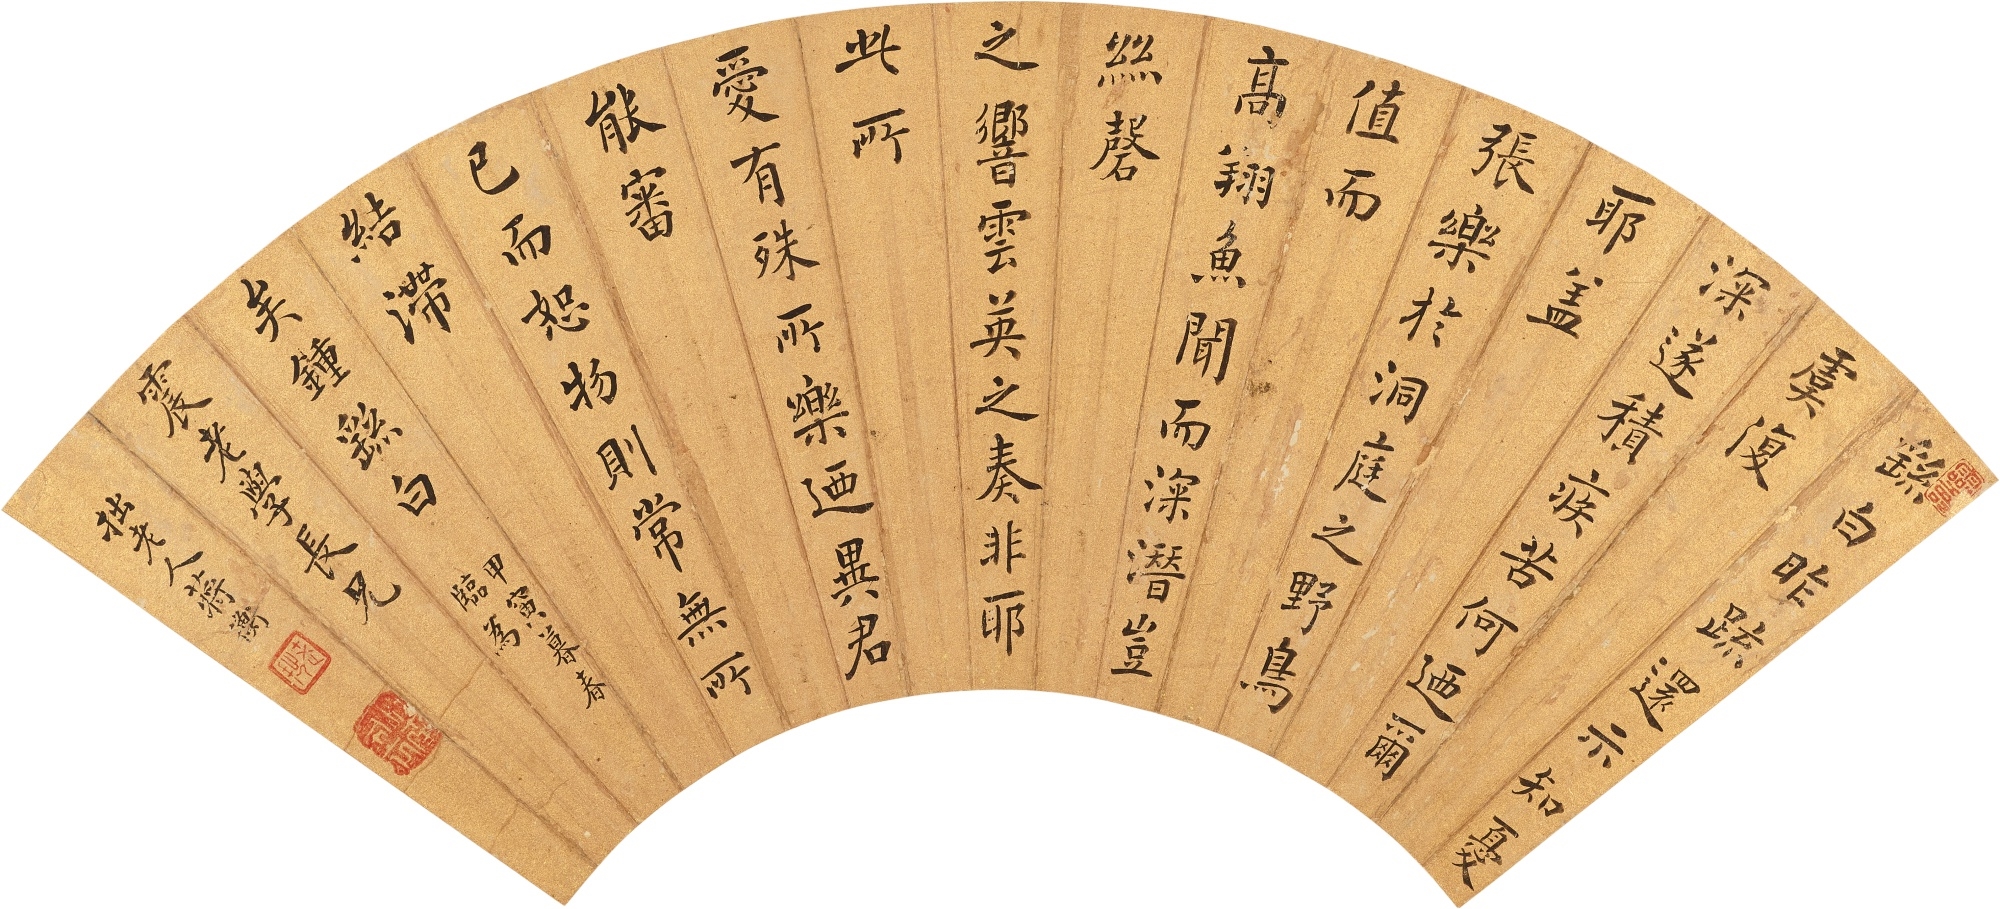 繇白昨疏還示知憂
虞復
深遂積疾苦何迺爾
耶盖
張樂於洞庭之野鳥
值而
高翔魚聞而深潛豈
絲磬
之響雲英之奏非耶
此所
愛有殊所樂迺異君
能審
已而恕物則常無所
結滯
矣鍾繇白
甲寅暮春
臨為
霞老學長兄
拙老人蔣衡